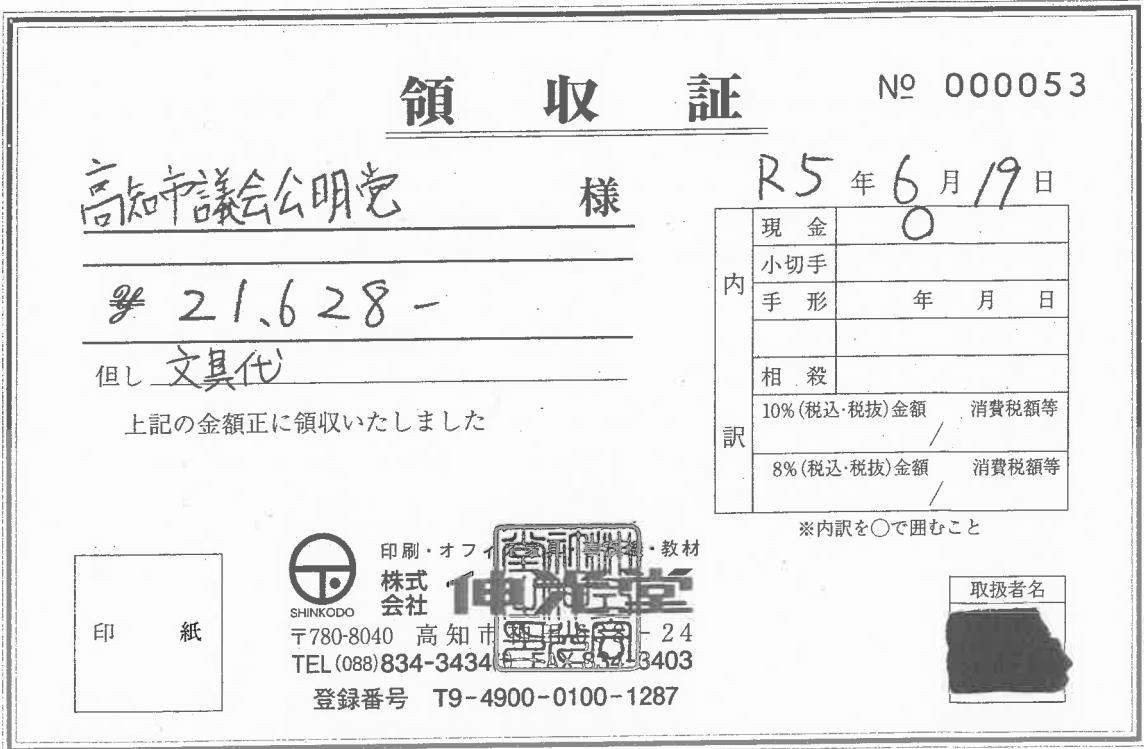 領収証
№ 000053
高知市議会公明党 様
R5年6月19日
¥ 21,628-
但し 文具代
上記の金額正に領収いたしました
内訳
現金 ○
小切手
手形 年 月 日
相殺
10%(税込・税抜)金額 消費税額等
/
8%(税込・税抜)金額 消費税額等
/
※内訳を○で囲むこと
印紙
SHINKODO
印刷・オフィ ・教材
株式会社 伸光堂
〒780-8040 高知市神田 -24
TEL(088)834-3434 FAX 834-3403
登録番号 T9-4900-0100-1287
取扱者名